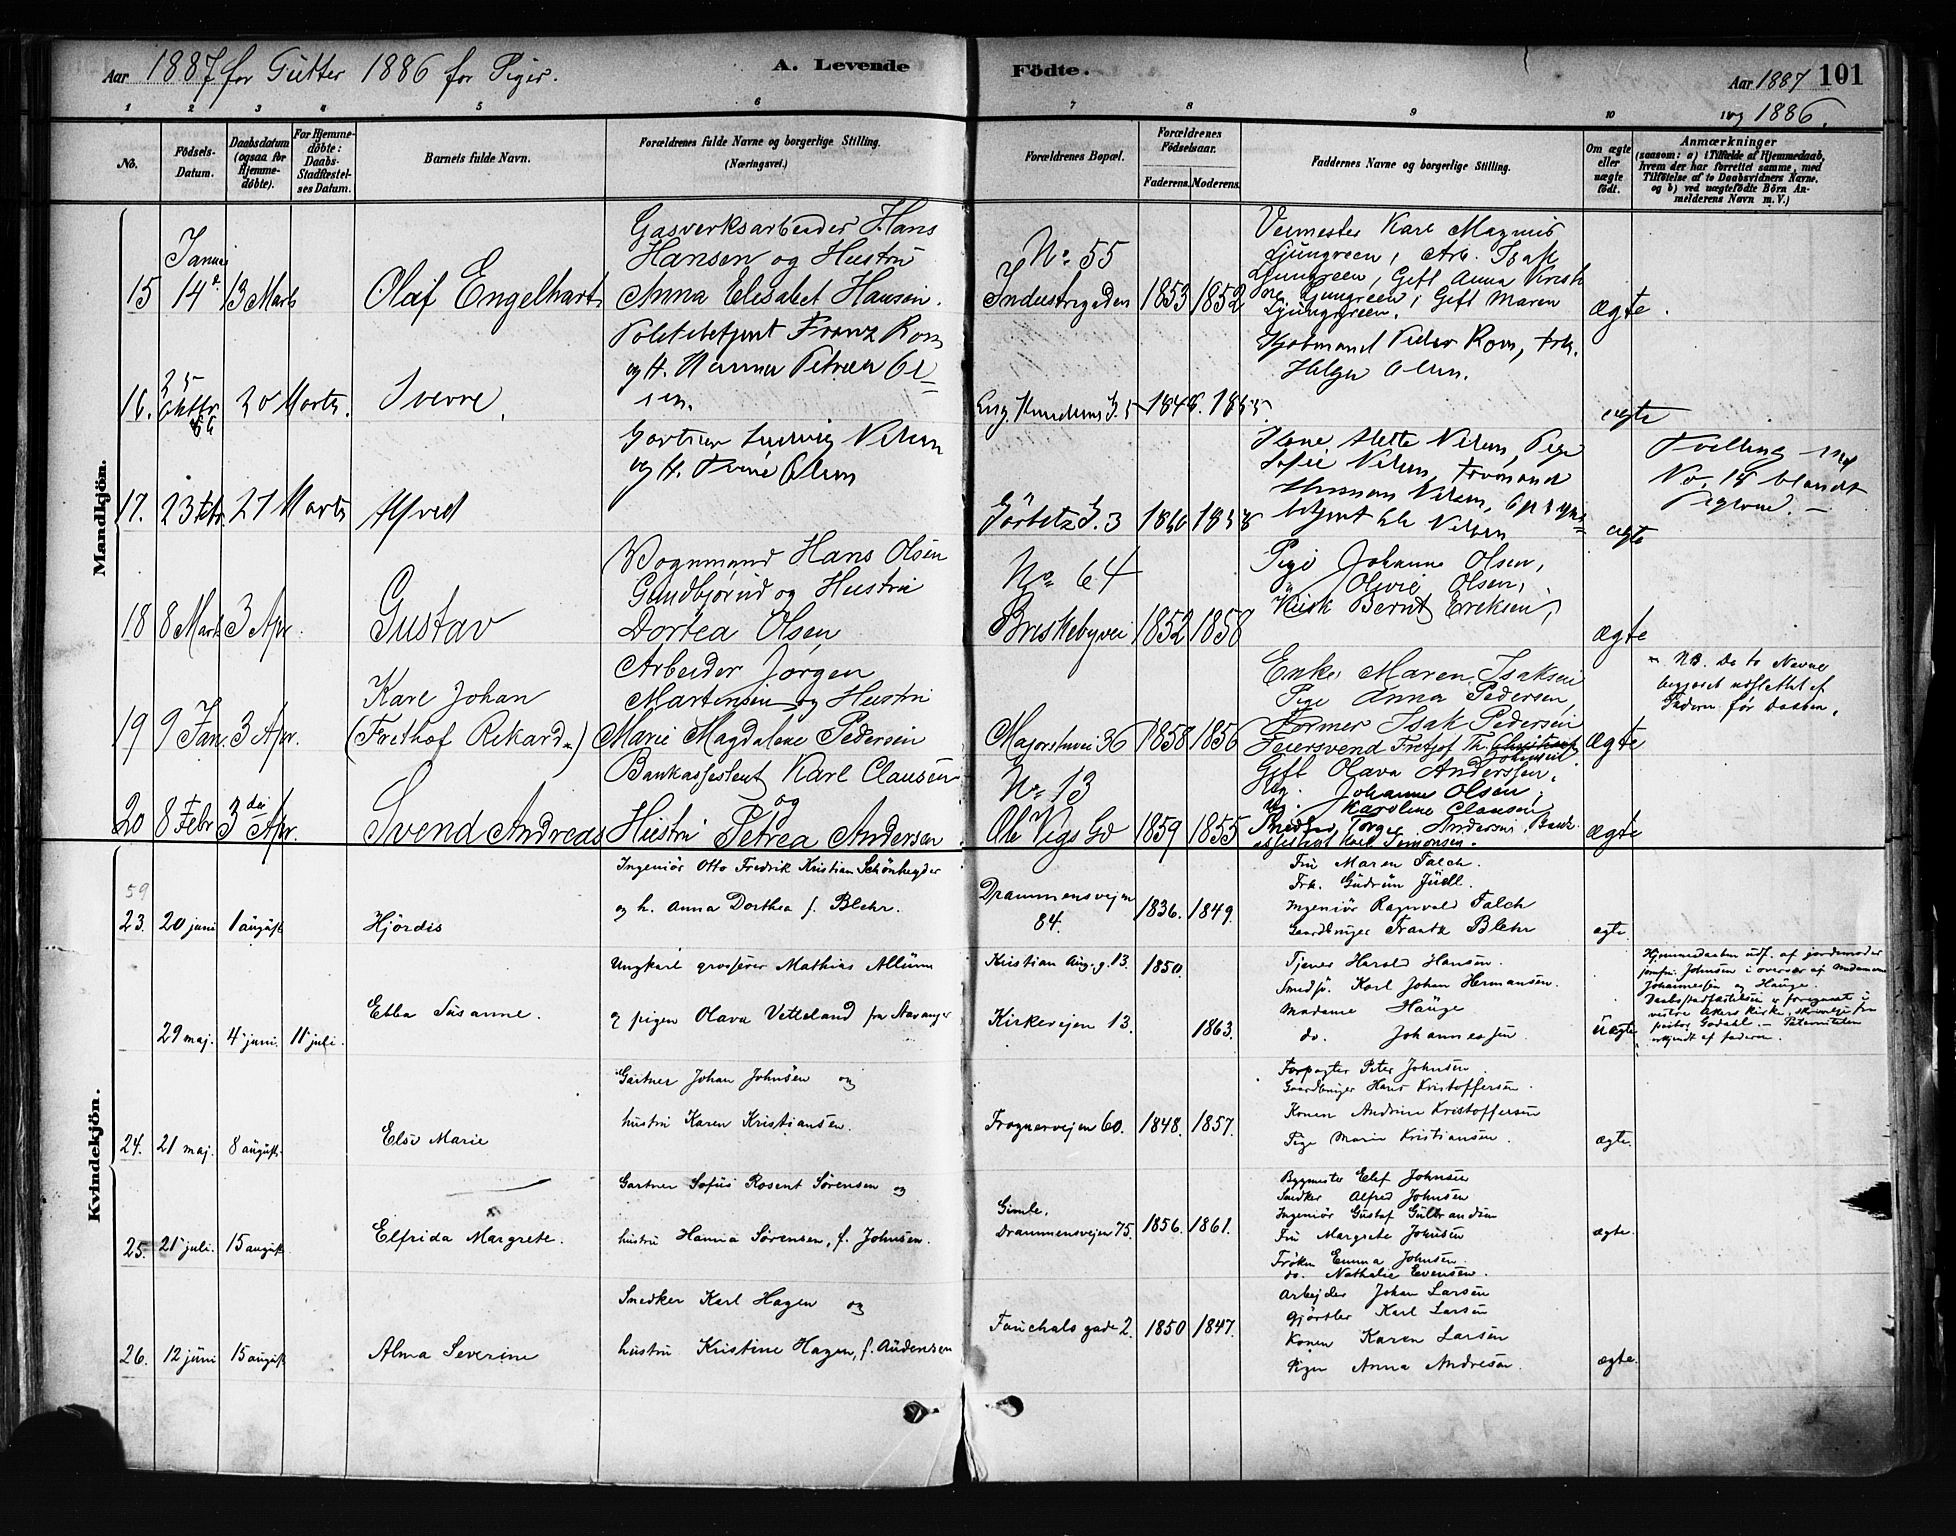 Aar 1887 for Gutter 1886 for Piger.
A. Levende Fødte.
Aar 1887 101
og 1886.
1 2 3 4 5 6 7 8 9 10 11
No.
Fødsels-Datum.
Daabsdatum (ogsaa for Hjemme-døbte).
For Hjemme-døbte: Daabs-Stadfæstel-ses Datum.
Barnets fulde Navn.
Forældrenes fulde Navne og borgerlige Stilling. (Næringsvei.)
Forældrenes Bopæl.
Forældrenes Fødselsaar.
Faderens. Moderens.
Faddernes Navne og borgerlige Stilling.
Om ægte eller uægte født.
Anmærkninger
(saasom: a) i Tilfælde af Hjemmedaab, hvem der har forrettet samme, med Tilføielse af to Daabsvidners Navne, og b) ved uægtefødte Børn Anmelderens Navn m. V.)
Mandkjøn.
15 14de Januar 13 Marts
Olaf Engelhart
Gasverksarbeider Hans
Hansen og Hustru
Anna Elisabet Hansen.
No. 55
Industrigaden 1853 1852
Vermester Karl Magnus
Ljungreen, Arb. Isak
Ljungreen, Gift Anna Krist
ine Ljungreen, Gift Maren
Ljungreen.
ægte.
16. 25 Oktbr. 86 20 Marts.
Sverre.
Politibetjent Franz Rom
og H. Hanna Petrea Ol=
sen.
1848. 1855
Kjøbmand Peder Rom, Frk.
Helga Olsen.
ægte
17. 23 Febr. 27 Marts
Alfred
Gartner Ludvig Nilsen
og H. Trine Olsen
Gørbitz G. 3 1860 1858
Kone Mette Nilsen, Pige
Sofie Nilsen,
Nilsen,
betjent Ole Nilsen
ægte
Tvilling med
No. 18 blandt
Pigerne. —
18 8 Marts 3 Apr.
Gustav
Vognmand Hans Olsen
Gundbjørud og Hustru
Dortea Olsen
No. 64
Briskebyvei 1852 1858
Pige Johanne Olsen,
" Olivie Olsen,
Kusk Bernt Eriksen,
ægte
19 9 Jan. 3 Apr.
Karl Johan
(Frethof Rikard)
Arbeider Jørgen
Martinsen og Hustru
Marie Magdalene Pedersen
Majorstuvei 36 1858 1856
Enke Maren Isaksen
Pige Anna Pedersen,
Former Isak Pedersen
Feiersvend Fretjof Th. Johnsen
ægte
NB. De to Navne
begjæret udslettet af
Faderen før Daaben.
20 8 Febr 3die Apr.
Svend Andreas
Bankassestent Karl Clausen
og
Hustru Petrea Andersen.
No. 13
Ole Vigs Gd 1859 1855
Gift Olava Anderssen,
Ug. Johanne Olsen,
Ug. Karoline Clausen,
Snedker Torger Andersen, Bank
assestent Karl Simonsen.
ægte
Kvindekjøn.
59
23. 20 juni 1 august
Hjördis
Ingeniör Otto Fredrik Kristian Schönheyder
og h. Anna Dorthea f. Blehr.
Drammensvejen
84. 1836. 1849.
Fru Maren Falch.
Frk. Gudrun Juell.
Ingeniör Ragnvald Falch
Gaardbruger Frantz Blehr
ægte
29 maj. 4 juni. 11 juli.
Ebba Susanne.
Ungkarl grosserer Mathias Allum
og pigen Olava Vetteland fra Stavanger
Kristian Aug. g. 13. 1850.
Kirkevejen 13. 1863.
Tjener Harald Hansen.
Smedsv. Karl Johan Hermansen.
Madame Hauge
do. Johannessen
Uægte
Hjemmedaaben udf. af jordemoder
jomfru Johnsen i overvær af madamerne
Johannessen og Hauge.
Daabsstadfæstelsen er foregaaet i
vestre Akers kirke, skrivelse fra
pastor Godahl. — Paterniteten
erkjendt af faderen.
24. 21 maj. 8 august.
Else Marie
Gartner Johan Johnsen og
hustru Karen Kristiansen.
Frognervejen 60. 1848. 1857.
Forpagter Peter Johnsen
Gaardbruger Hans Kristoffersen.
Konen Andrine Kristoffersen
Pige Marie Kristiansen.
ægte.
25. 21 juli. 15 august
Elfrida Margrete.
Gartner Sofus Rosent Sörensen og
hustru Hanna Sörensen, f. Johnsen.
Gimle,
Drammensvejen 75. 1856. 1861.
Bygmester Elef Johnsen
Snedker Alfred Johnsen
Ingeniör Gustaf Gulbrandsen
Fru Margrete Johnsen
Fröken Emma Johnsen.
do. Nathalie Evensen.
ægte.
26. 12 juni 15 august
Alma Severine
Snedker Karl Hagen og
hustru Kristine Hagen, f. Audensen
Fauchals gade 2. 1850 1847.
Arbejder Johan Larsen
Gjörtler Karl Larsen
Konen Karen Larsen
Pigen Anna Andresen.
ægte.